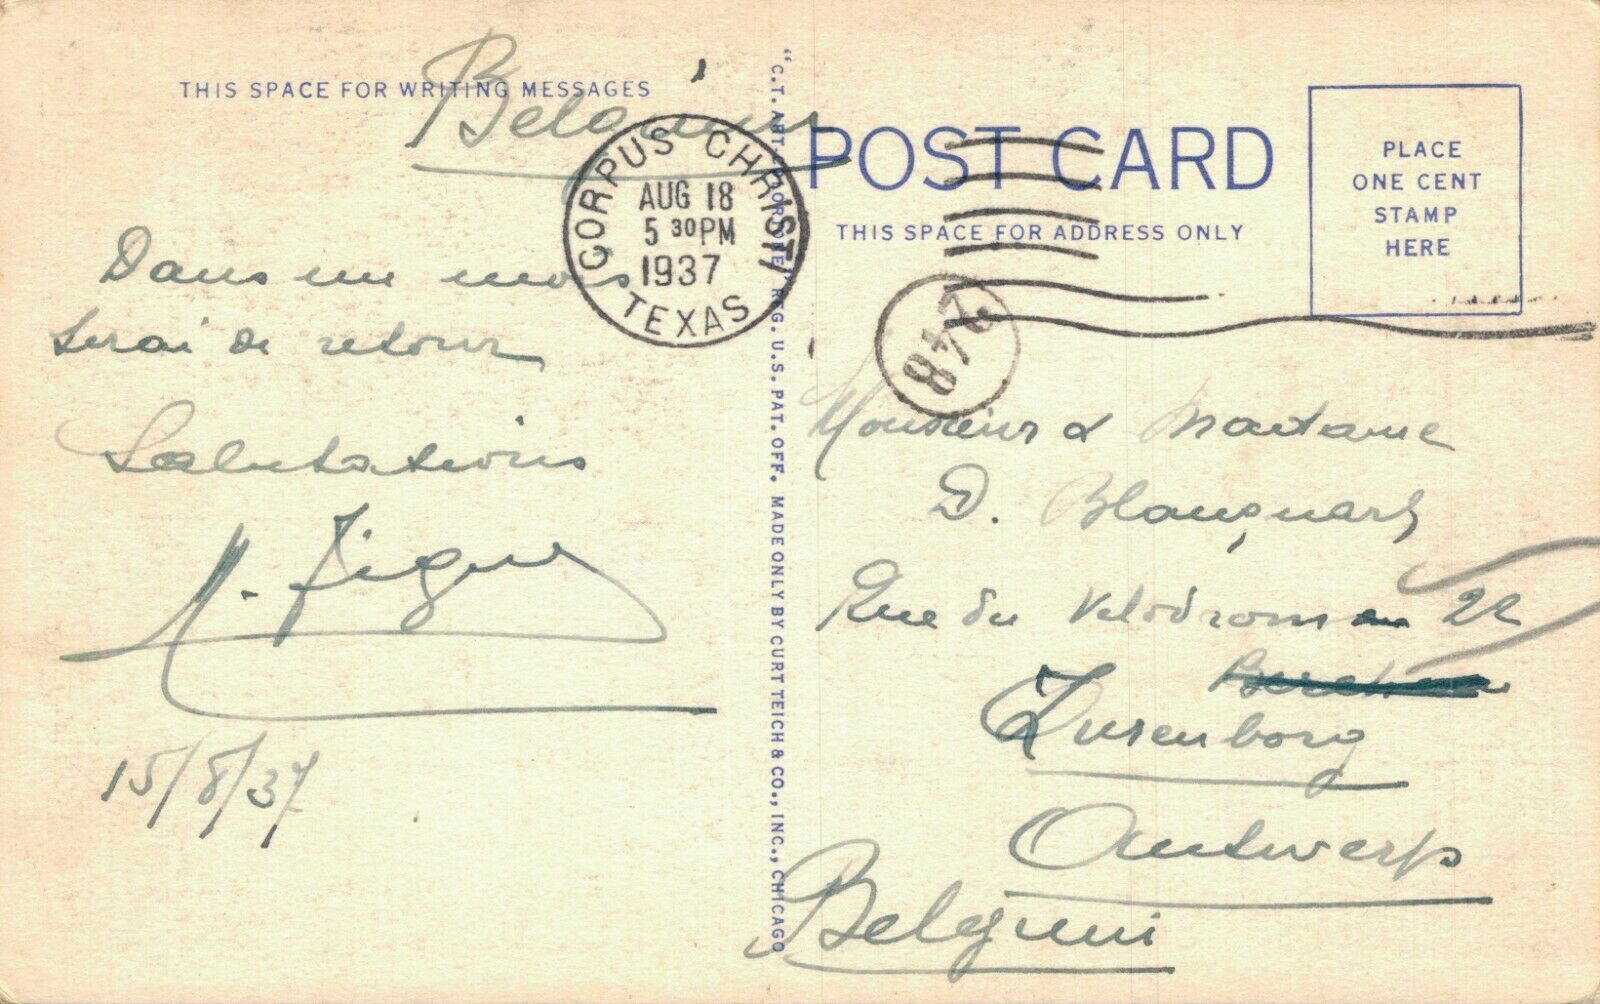 THIS SPACE FOR WRITING MESSAGES
Belgium
CORPUS CHRISTI
AUG 18
5 30 PM
1937
TEXAS
Dans un mois
serai de retour
Salutations
15/8/37
"C.T. ART-COLORTONE" REG. U.S. PAT. OFF. MADE ONLY BY CURT TEICH & CO., INC., CHICAGO
POST CARD
THIS SPACE FOR ADDRESS ONLY
PLACE
ONE CENT
STAMP
HERE
Monsieur & Madame
D. Blanquart
Rue du Velodrome 22
Zurenborg
Antwerp
Belgium